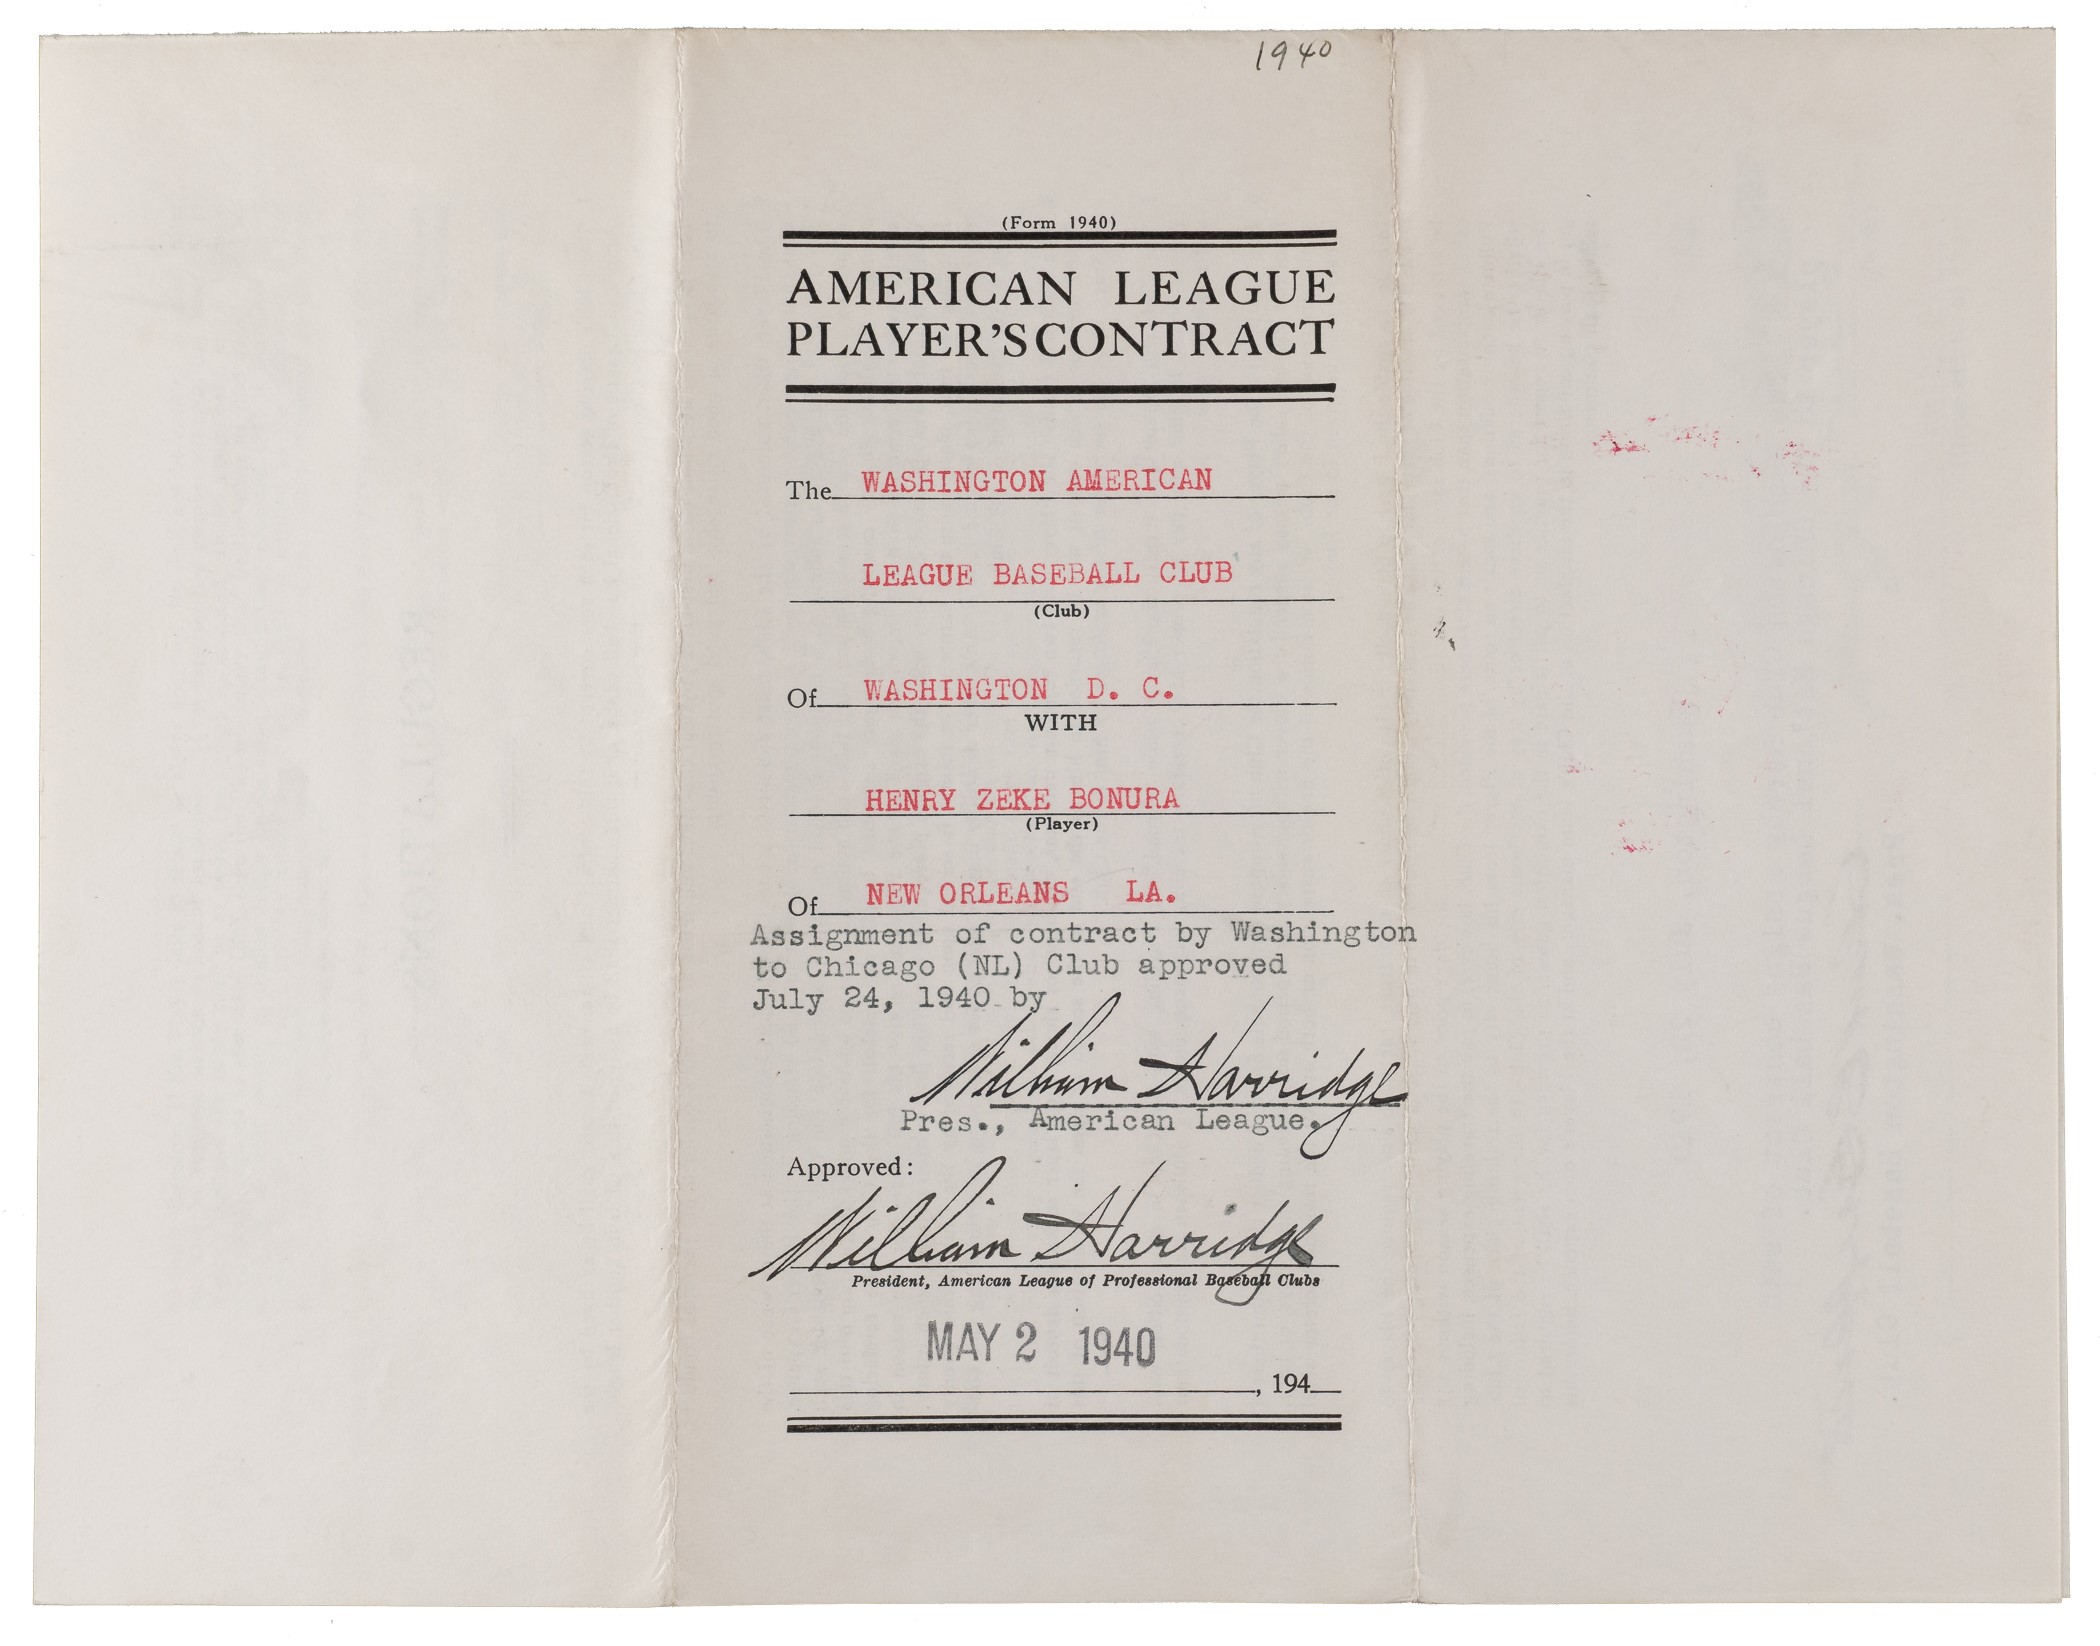 1940
(Form 1940)
AMERICAN LEAGUE
PLAYER'S CONTRACT
The WASHINGTON AMERICAN
LEAGUE BASEBALL CLUB
(Club)
Of WASHINGTON D. C.
WITH
HENRY ZEKE BONURA
(Player)
Of NEW ORLEANS LA.
Assignment of contract by Washington
to Chicago (NL) Club approved
July 24, 1940 by
William Harridge
Pres., American League.
Approved:
William Harridge
President, American League of Professional Baseball Clubs
MAY 2 1940
, 194